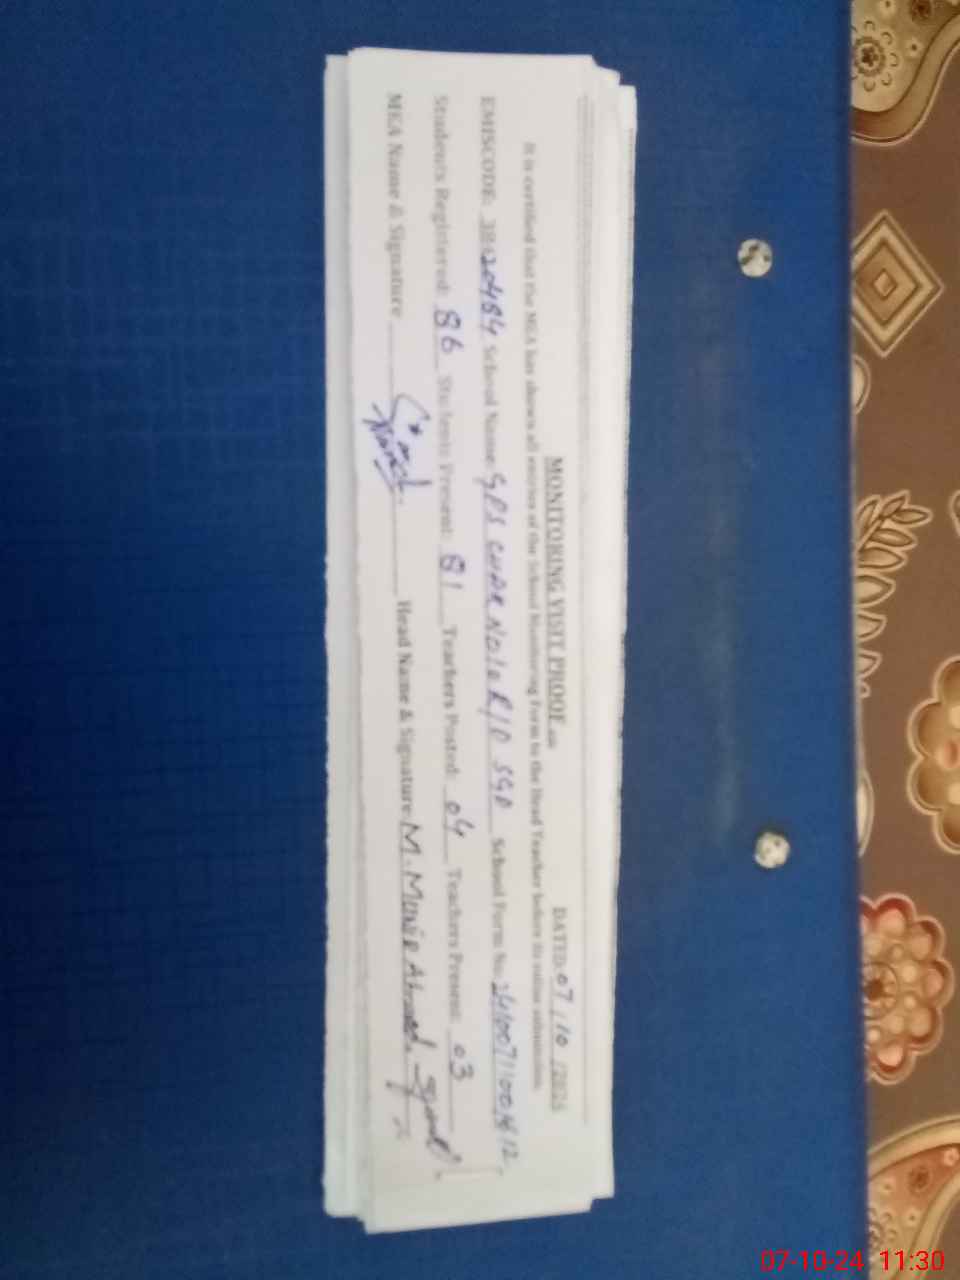 MONITORING VISIT PROOF
DATED: 07/10/2024
It is certified that the MEA has shown all entries of the School Monitoring Form to the Head Teacher before its online submission.
EMISCODE: 38420484 School Name: GPS CHAK NO 10 R/D SGD School Form No:
Students Registered: 86 Students Present: 81 Teachers Posted: 04 Teachers Present: 03
MEA Name & Signature Head Name & Signature M. Munir Ahmed
07-10-24 11:30